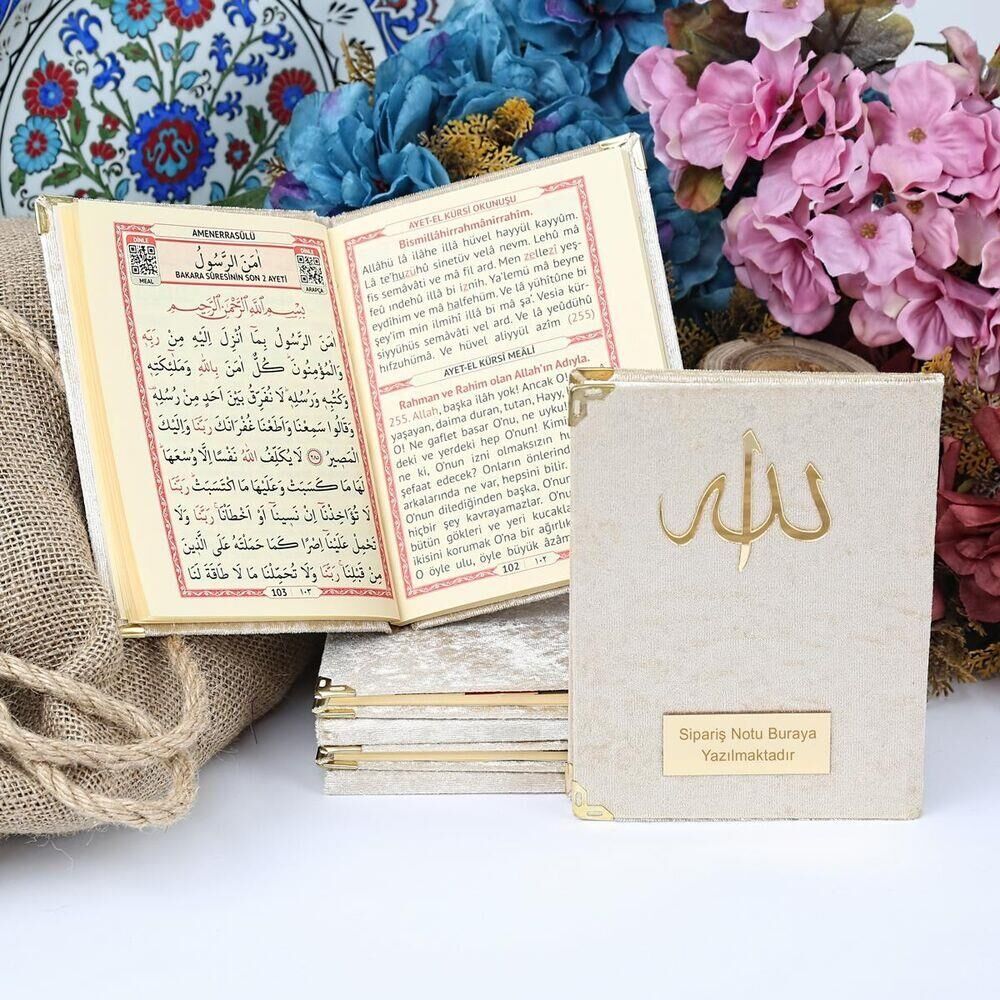 AMENERRASÛLÜ
DİNLE
MEAL
اٰمَنَ الرَّسُولُ
BAKARA SÛRESİNİN SON 2 AYETİ
DİNLE
ARAPÇA
بِسْمِ اللّٰهِ الرَّحْمٰنِ الرَّحِيمِ
اٰمَنَ الرَّسُولُ بِمَٓا اُنْزِلَ اِلَيْهِ مِنْ رَبِّهٖ
وَالْمُؤْمِنُونَۜ كُلٌّ اٰمَنَ بِاللّٰهِ وَمَلٰٓئِكَتِهٖ
وَكُتُبِهٖ وَرُسُلِهٖۜ لَا نُفَرِّقُ بَيْنَ اَحَدٍ مِنْ رُسُلِهٖ
وَقَالُوا سَمِعْنَا وَاَطَعْنَا غُفْرَانَكَ رَبَّنَا وَاِلَيْكَ
الْمَصِيرُ ﴿٢٨٥﴾ لَا يُكَلِّفُ اللّٰهُ نَفْسًا اِلَّا وُسْعَهَاۜ
لَهَا مَا كَسَبَتْ وَعَلَيْهَا مَا اكْتَسَبَتْۜ رَبَّنَا
لَا تُؤَاخِذْنَٓا اِنْ نَسِينَٓا اَوْ اَخْطَأْنَاۚ رَبَّنَا وَلَا
تَحْمِلْ عَلَيْنَٓا اِصْرًا كَمَا حَمَلْتَهُ عَلَى الَّذِينَ
مِنْ قَبْلِنَاۚ رَبَّنَا وَلَا تُحَمِّلْنَا مَا لَا طَاقَةَ لَنَا
103 ١٠٣
AYET-EL KÜRSİ OKUNUŞU
Bismillâhirrahmânirrahim.
Allâhü lâ ilâhe illâ hüvel hayyül kayyûm.
Lâ te'huzühû sinetüv velâ nevm. Lehû mâ
fis semâvâti ve mâ fil ard. Men zellezi yeş-
feû ındehû illâ bi iznih. Ya'lemü mâ beyne
eydîhim ve mâ halfehüm. Ve lâ yühîtûne bi
şey'im min ilmihî illâ bi mâ şa'. Vesia kür-
siyyühüs semâvâti vel ard. Ve lâ yeûdühû
hıfzuhümâ. Ve hüvel aliyyül azîm (255)
AYET-EL KÜRSİ MEALİ
Rahman ve Rahim olan Allah'ın Adıyla.
255. Allah, başka ilâh yok! Ancak O
yaşayan, daima duran, tutan, Hayy,
O! Ne gaflet basar O'nu, ne uyku
deki ve yerdeki hep O'nun! Kimin
ne ki, O'nun izni olmaksızın hu
şefaat edecek? Onların önlerind
arkalarında ne var, hepsini bilir.
O'nun dilediğinden başka. O'nun
hiçbir şey kavrayamazlar. O'nun
bütün gökleri ve yeri kucakla
ikisini korumak O'na bir ağırlık
O öyle ulu, öyle büyük âzâm
102 ١٠٢
الله
Sipariş Notu Buraya
Yazılmaktadır